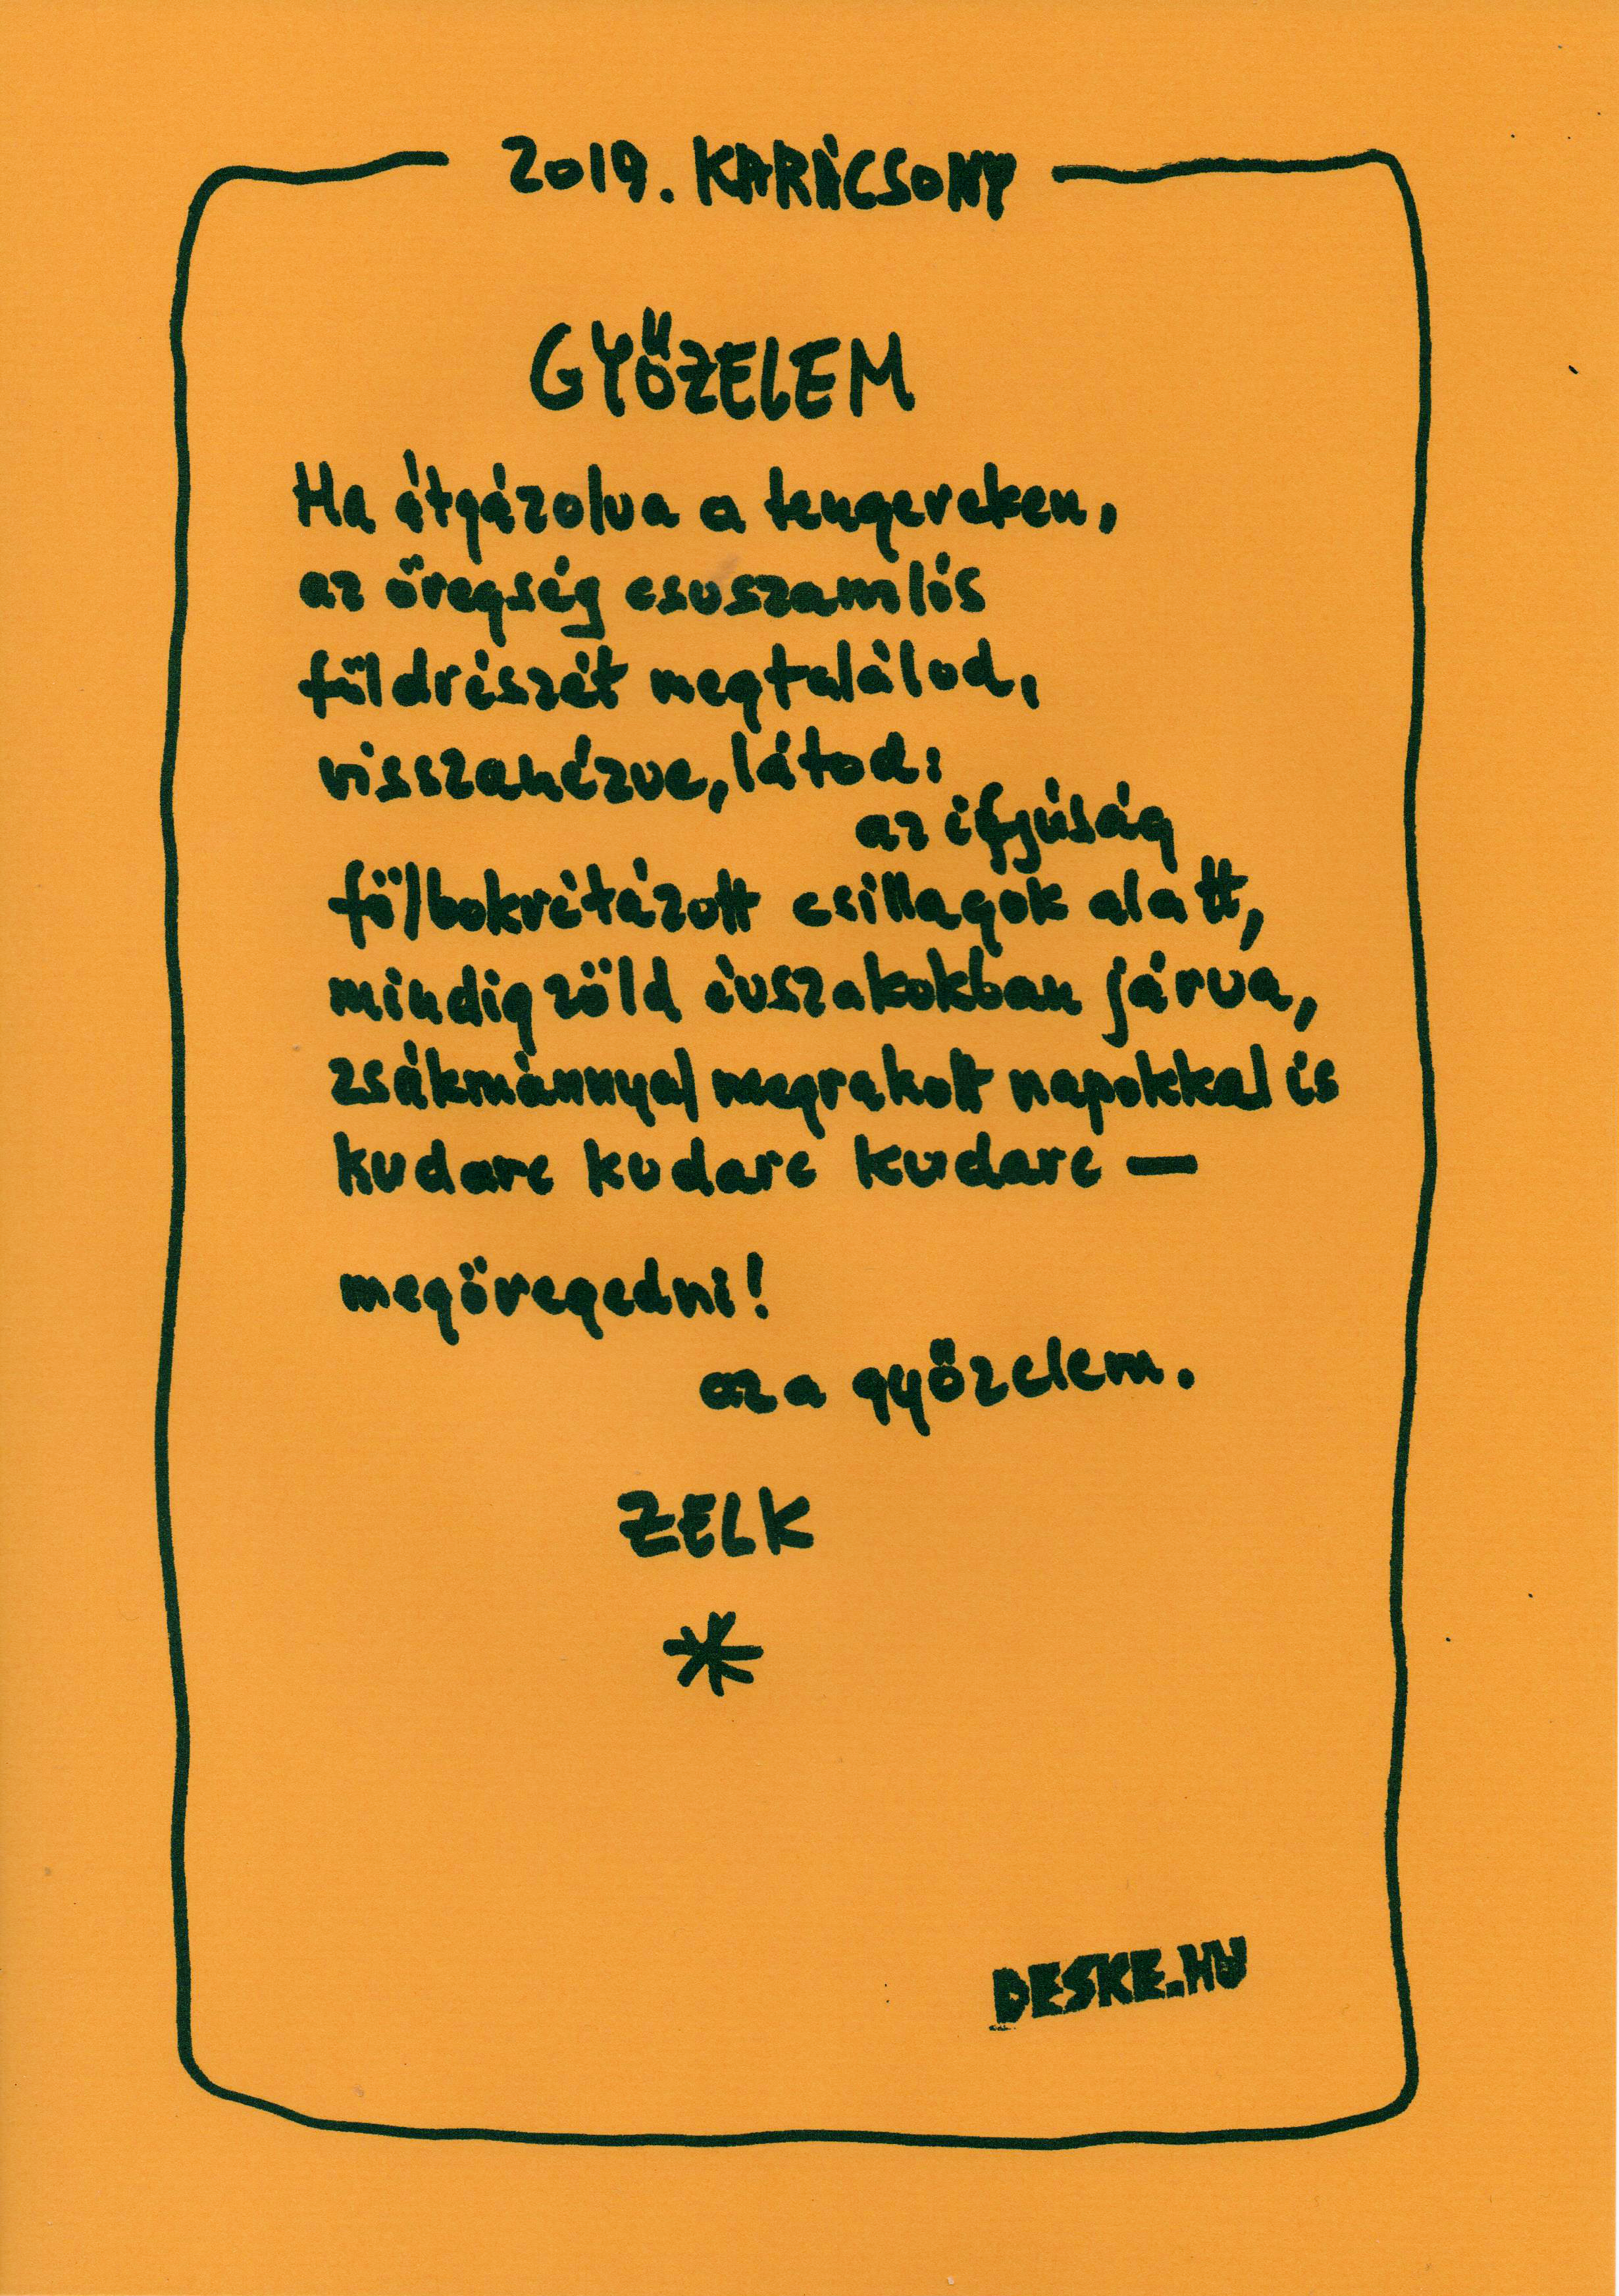 2019. KARÁCSONY
GYŐZELEM
Ha átgázolva a tengereken,
az öregség csuszamlós
földrészét megtalálod,
visszanézve, látod:
az ifjúság
fölbokrétázott csillagok alatt,
mindig zöld évszakokban járva,
zsákmánnyal megrakott napokkal is
kudarc kudarc kudarc —
megöregedni!
az a győzelem.
ZELK
*
DESKE.HU